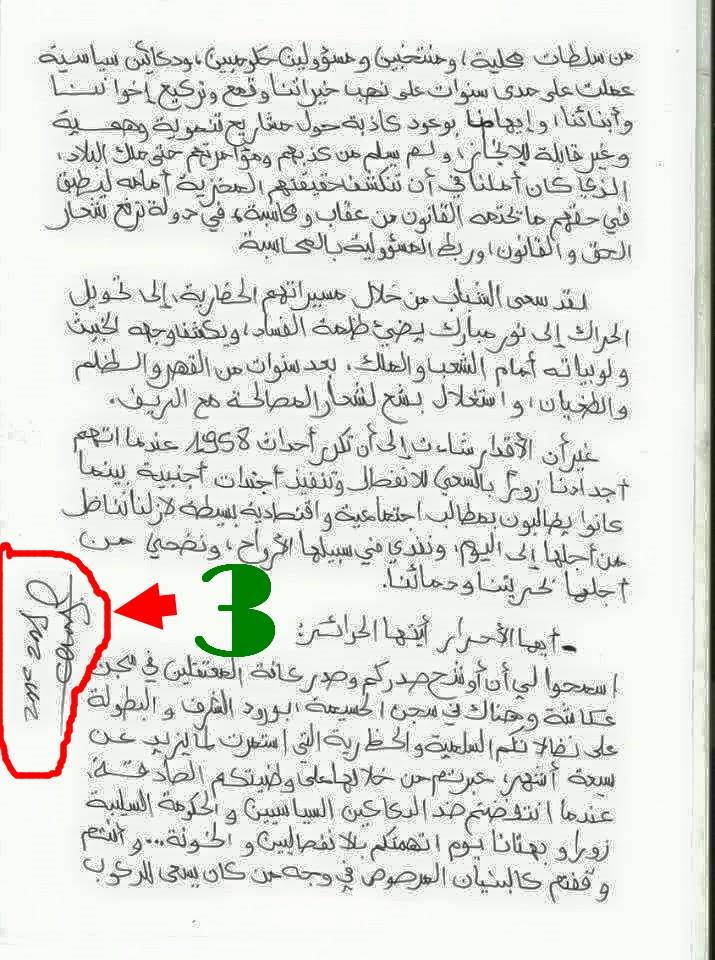 من سلطات محلية، ومنتخبين ومسؤولين حكوميين، ودكاكين سياسية
عملت على مدى سنوات على نهب خيراتنا وقمع وتركيع إخواننا
وأبنائنا، وإيهامنا بوعود كاذبة حول مشاريع تنموية وهمية
وغير قابلة للإنجاز، ولم يسلم من كذبهم ومؤامرتهم حتى ملك البلاد،
الذي كان أملنا في أن تنكشف حقيقتهم المخزية أمامه ليطبق
في حقهم ما يحتمه القانون من عقاب ومحاسبة، في دولة ترفع شعار
الحق والقانون وربط المسؤولية بالمحاسبة
لقد سعى الشباب من خلال مسيراتهم الحضارية، إلى تحويل
الحراك إلى نور مبارك يضيئ ظلمة الفساد، ويكشف وجهه الخبيث
ولوبياته أمام الشعب والملك، بعد سنوات من القهر والظلم
والطغيان، واستغلال بشع لشعار المصالحة مع الريف.
غير أن الأقدار شاءت إلى أن تكرر أحداث 1958، عندما اتهم
أجدادنا زوراً بالسعي للانفصال وتنفيذ أجندات أجنبية بينما
كانوا يطالبون بمطالب اجتماعية واقتصادية بسيطة لازلنا نناضل
من أجلها إلى اليوم، ونفدي في سبيلها الأرواح، ونضحي من
أجلها بحريتنا ودمائنا.
3
- أيها الأحرار أيتها الحرائر:
اسمحوا لي أن أوشح صدركم وصدر عامة المعتقلين في سجن
عكاشة وهناك في سجن الحسيمة، بورود الشرف والبطولة
على نضالاتكم السلمية والحضارية التي استمرت لما يزيد عن
سبعة أشهر، عبرتم من خلالها على وطنيتكم الصادقة،
عندما انتفضتم ضد الدكاكين السياسيين والحكومة السلبية
زورا وبهتانا يوم اتهمتكم بالانفصاليين والخونة... وأنتم
وقفتم كالبنيان المرصوص في وجه من كان يسعى للركوب